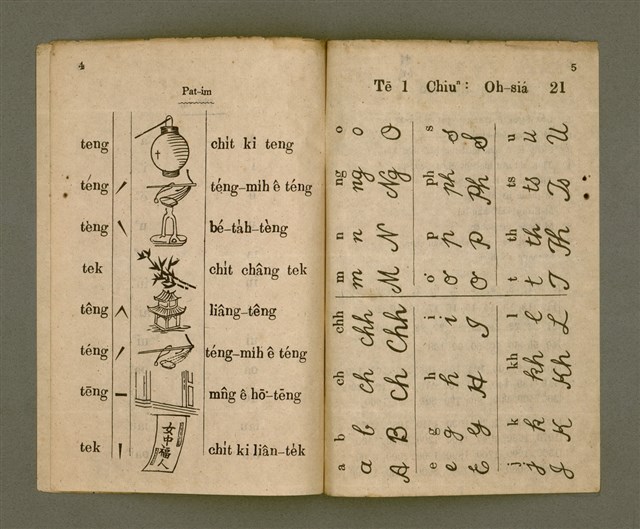 4
Pat-im
teng chi̍t ki teng
téng ˊ téng-mih ê téng
tèng ˋ bé-ta̍h-tèng
tek chi̍t châng tek
têng ˆ liâng-têng
téng ˊ téng-mih ê téng
tēng - mn̂g ê hō͘-tēng
女中福人
te̍k ˈ chi̍t ki liân-te̍k
5
Tē 1 Chiuⁿ: Oh-siá 21
a b ch chh m n ng o
a b ch chh m n ng o
A B Ch Chh M N Ng O
e g h i o͘ p ph s
e g h i o͘ p ph s
E G H I O͘ P Ph S
j k kh l t th ts u
j k kh l t th ts u
J K Kh L T Th Ts U